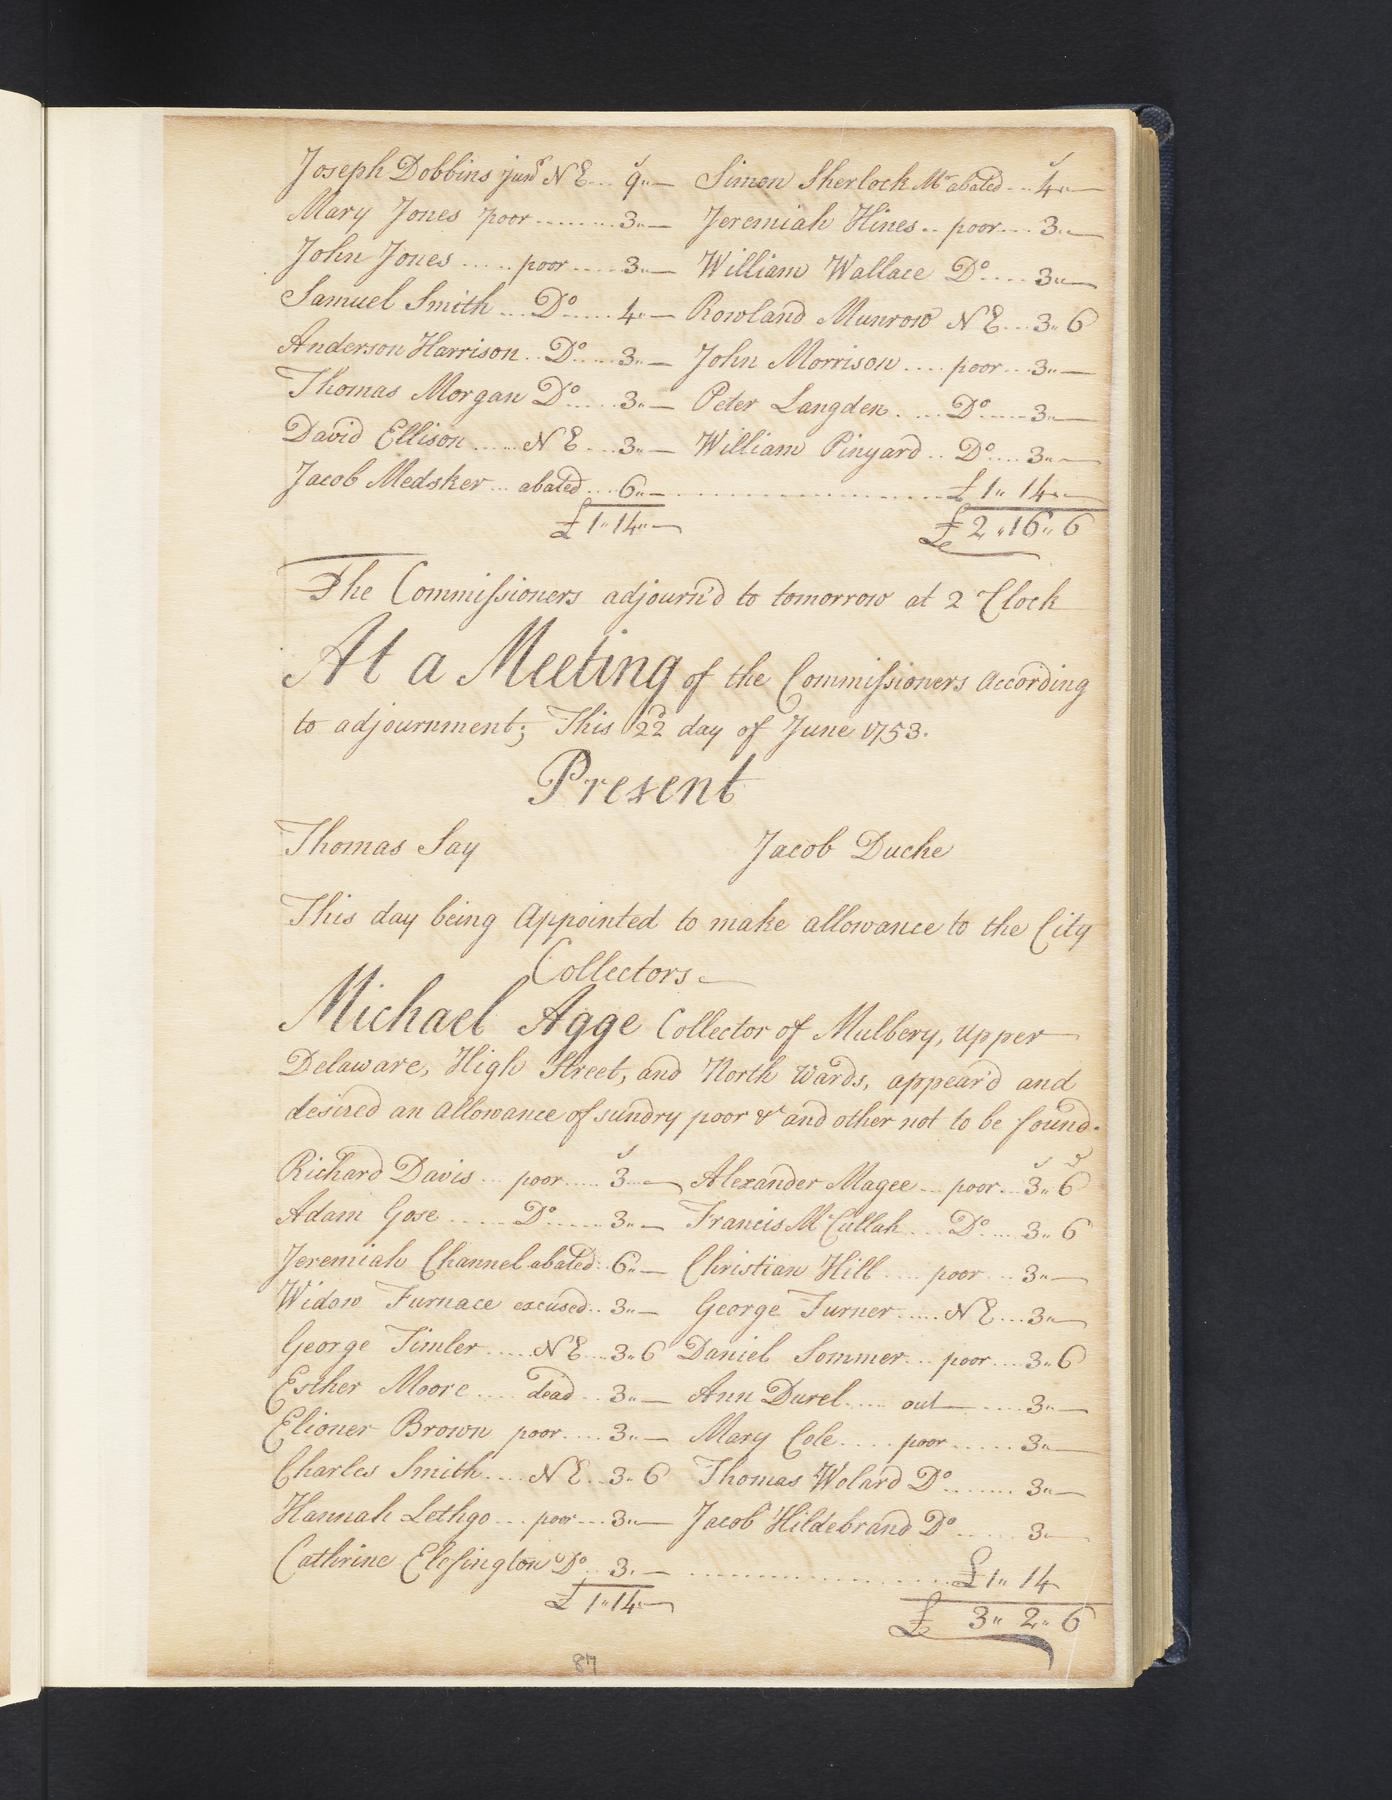 s s
Joseph Dobbins junr N E ... 9 " — Simon Sherlock Mr abated ... 4 " —
Mary Jones poor ........ 3 " — Jeremiah Hines .. poor ... 3 " —
John Jones ..... poor .... 3 " — William Wallace Do .... 3 " —
Samuel Smith ... Do ..... 4 " — Rowland Munrow N E ... 3 " 6
Anderson Harrison .. Do .... 3 " — John Morrison .... poor ... 3 " —
Thomas Morgan Do ..... 3 " — Peter Langden ..... Do .... 3 " —
David Ellison ..... N E ... 3 " — William Pinyard .. Do .... 3 " —
Jacob Medsker ... abated ... 6 " — .................... £ 1 " 14 " —
£ 1 " 14 " — £ 2 " 16 " 6
The Commissioners adjourn'd to tomorrow at 2 Clock
At a Meeting of the Commissioners according
to adjournment; This 22d day of June 1753.
Present
Thomas Say Jacob Duche
This day being Appointed to make allowance to the City
Collectors —
Michael Agge Collector of Mulbery, Upper
Delaware, High Street, and North Wards, appear'd and
desired an allowance of sundry poor &c and other not to be found.
s s d
Richard Davis ... poor ..... 3 " — Alexander Magee ... poor ... 3 " 6
Adam Gose ...... Do ...... 3 " — Francis McCullah .... Do .... 3 " 6
Jeremiah Channel abated .. 6 " — Christian Hill .... poor ... 3 " —
Widow Furnace excused .. 3 " — George Turner ..... N E ... 3 " —
George Timler ..... N E ... 3 " 6 Daniel Sommer ... poor .... 3 " 6
Esther Moore .... dead .. 3 " — Ann Durel ..... out ..... 3 " —
Elioner Brown poor .... 3 " — Mary Cole .... poor ..... 3 " —
Charles Smith .... N E .. 3 " 6 Thomas Wolard Do ....... 3 " —
Hannah Lethgo ... poor ... 3 " — Jacob Hildebrand Do ...... 3 " —
Cathrine Elessington Do .. 3 " — .................... £ 1 " 14
£ 1 " 14 " — £ 3 " 2 " 6
87